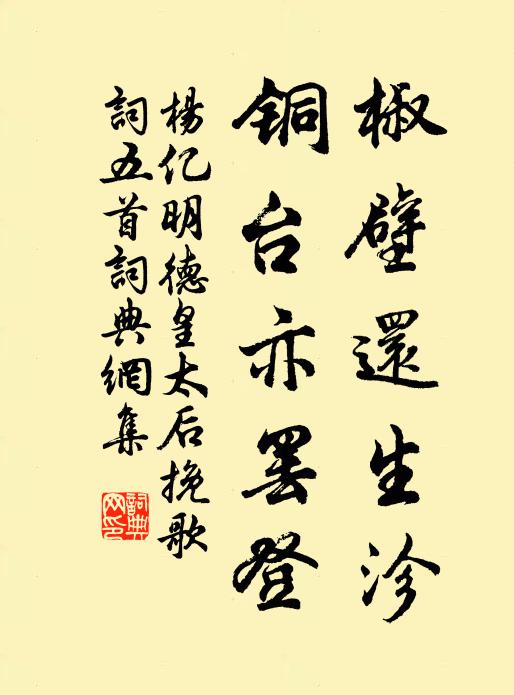 椒壁還生沴
铜台亦罢登
杨亿明德皇太后挽歌
詞五首詞典網集
詞典网印